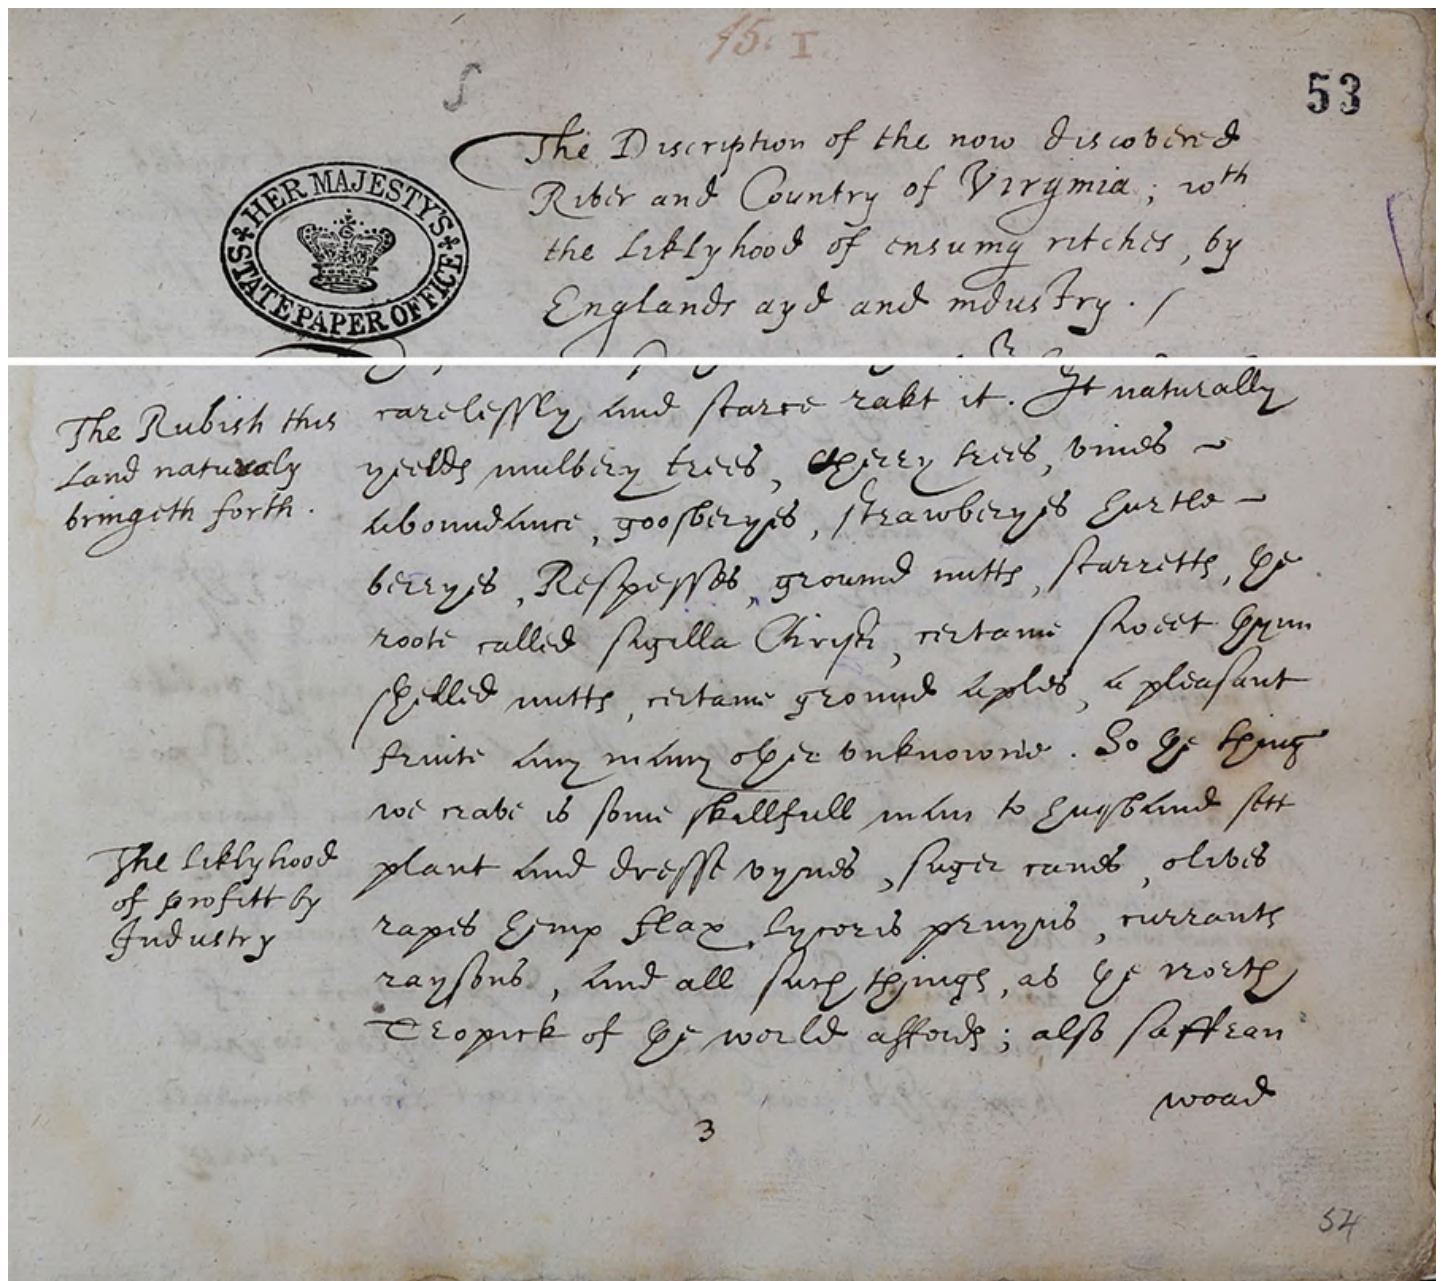 15. I
53
The Discription of the now discovered
River and Country of Virginia; wth
the liklyhood of ensuing ritches, by
Englands ayd and industry. /
HER MAJESTY'S
STATE PAPER OFFICE
The Rubish this
Land naturaly
bringeth forth.
carelessly and scarce rakt it. It naturally
yeelds mulbery trees, cherry trees, vines
aboundance, goosberyes, strawberyes hurtle-
berryes, Respesses, ground nutts, scarretts, the
roote called sigilla Christi, certaine sweet thynn
shelled nutts, certaine ground aples, a pleasant
fruite any many other unknowne. So the thing
we crave is some skillfull man to husband sett
The liklyhood
of profitt by
Industry
plant and dresse vynes, suger canes, olives
rapes hemp flax, lycoris pruyns, currants
raysons, and all such things, as the north
Tropick of the world affords; also saffran
woad
3
54